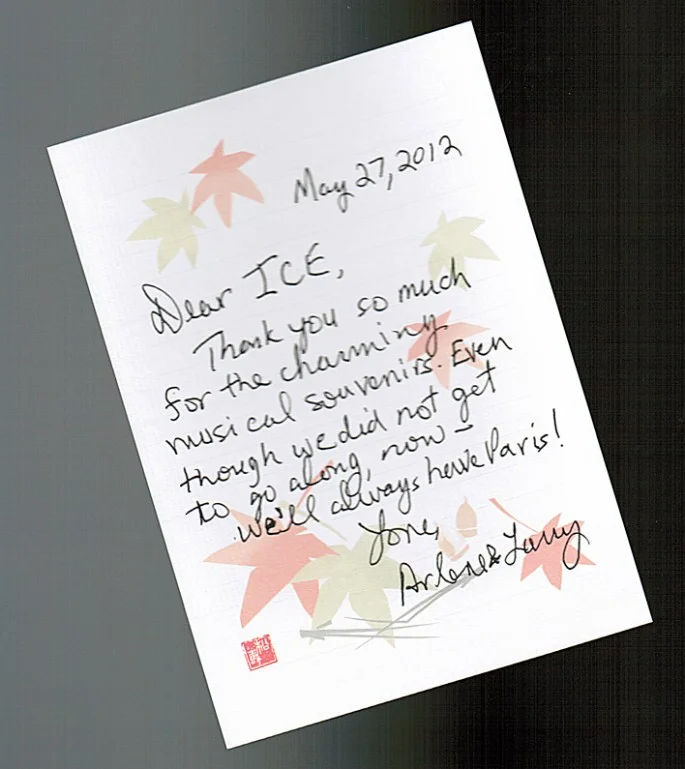 May 27, 2012
Dear ICE,
Thank you so much
for the charming
musical souvenirs. Even
though we did not get
to go along, now –
we'll always have Paris!
Love,
Arlene & Larry